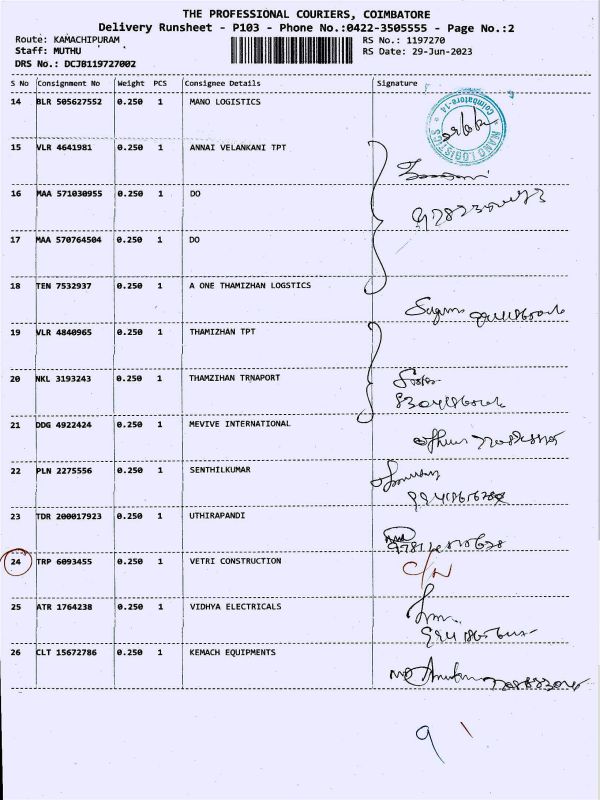 THE PROFESSIONAL COURIERS, COIMBATORE
Delivery Runsheet - P103 - Phone No.:0422-3505555 - Page No.:2
Route: KAMACHIPURAM
RS No.: 1197270
Staff: MUTHU
RS Date: 29-Jun-2023
DRS No.: DCJB119727002
S No Consignment No Weight PCS Consignee Details Signature
14 BLR 505627552 0.250 1 MANO LOGISTICS
MANO LOGISTICS Coimbatore-14
15 VLR 4641981 0.250 1 ANNAI VELANKANI TPT
16 MAA 571030955 0.250 1 DO
17 MAA 570764504 0.250 1 DO
18 TEN 7532937 0.250 1 A ONE THAMIZHAN LOGSTICS
19 VLR 4840965 0.250 1 THAMIZHAN TPT
20 NKL 3193243 0.250 1 THAMZIHAN TRNAPORT
21 DDG 4922424 0.250 1 MEVIVE INTERNATIONAL
22 PLN 2275556 0.250 1 SENTHILKUMAR
23 TDR 200017923 0.250 1 UTHIRAPANDI
24 TRP 6093455 0.250 1 VETRI CONSTRUCTION C/N
25 ATR 1764238 0.250 1 VIDHYA ELECTRICALS
26 CLT 15672786 0.250 1 KEMACH EQUIPMENTS
9 \